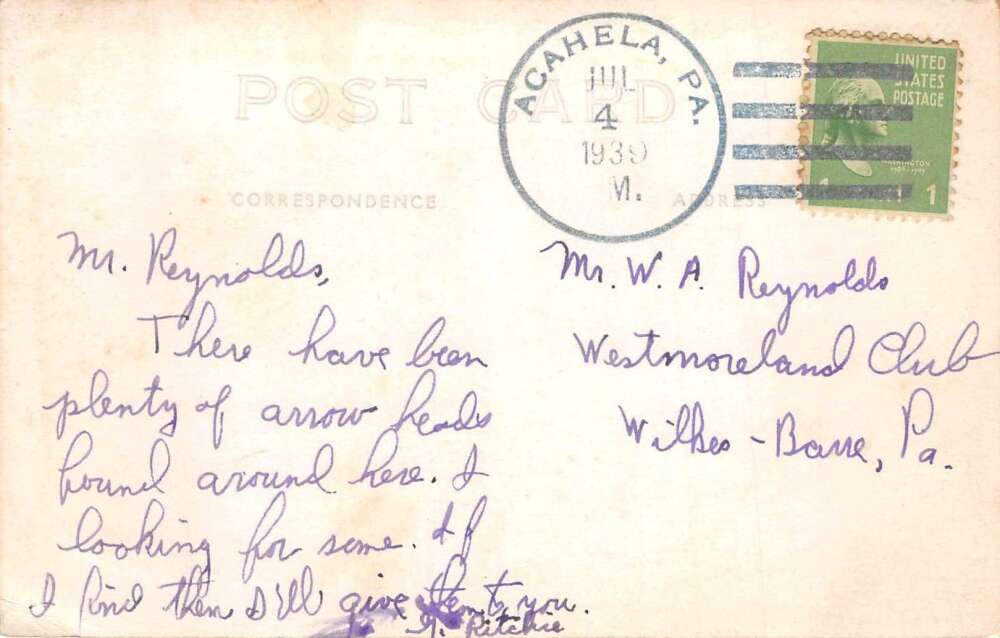 ACAHELA, PA.
JUL
4
1939
M.
UNITED
STATES
POSTAGE
WASHINGTON
1 1
POST CARD
CORRESPONDENCE
ADDRESS
Mr. Reynolds,
There have been
plenty of arrow heads
found around here. I
looking for some. If
I find them I'll give them to you.
Ritchie
Mr. W. A. Reynolds
Westmoreland Club
Wilkes-Barre, Pa.